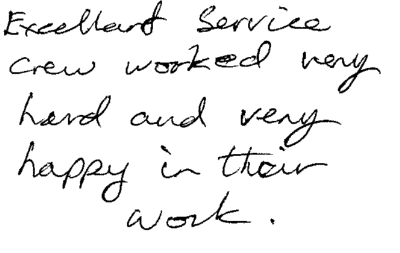 Excellant Service
crew worked very
hard and very
happy in their
work.